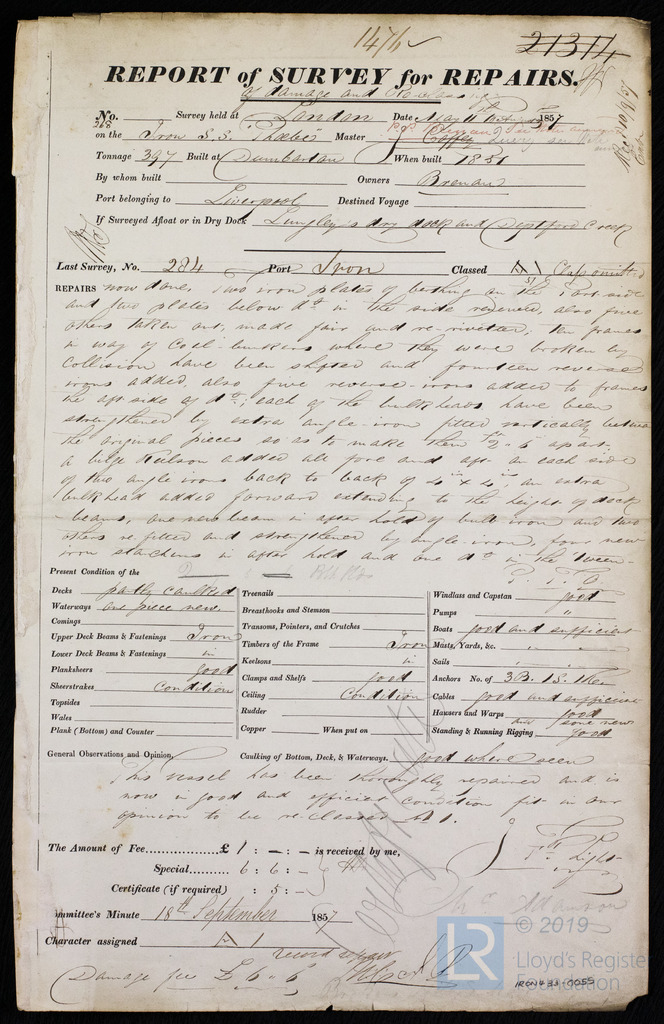 1476
21314
REPORT of SURVEY for REPAIRS.
of damage and Reclassing
No. 268 Survey held at London Date May 11th to August 1857
on the Iron S.S. Phoebe Master
Tonnage 397 Built at Dumbarton When built 1851
By whom built Owners Brenan
Port belonging to Liverpool Destined Voyage
If Surveyed Afloat or in Dry Dock Lungley's dry dock and Deptford Creek
Last Survey, No. 284 Port Iron Classed A1 Class omitted
51
REPAIRS now done, Two iron plates of berthing on the Port side
and two plates below do. in the side renewed, also five
others taken out, made fair and re-rivetted, ten frames
in way of Coal-bunkers where they were broken by
Collision have been shifted and fourteen reverse
irons added, also five reverse-irons added to frames
the aft side of do; each of the bulkheads have been
strengthened by extra angle-iron fitted vertically between
the original pieces so as to make them 2-6 apart
a bilge Keelson added all fore and aft on each side
of two angle irons back to back of 4in x 4in an extra
bulkhead added forward extending to the height of deck
beams, one new beam in after hold of bulb iron and two
others re-fitted and strengthened by angle-iron, four new
iron stanchions in after hold and one do. in the tween-
P.T.O
Present Condition of the
Decks partly caulked
Waterways one piece new
Comings
Upper Deck Beams & Fastenings Iron
Lower Deck Beams & Fastenings in
Planksheers good
Sheerstrakes Condition
Topsides
Wales
Plank (Bottom) and Counter
Treenails
Breasthooks and Stemson
Transoms, Pointers, and Crutches
Timbers of the Frame Iron
Keelsons in
Clamps and Shelfs good
Ceiling Condition
Rudder
Copper When put on
Windlass and Capstan good
Pumps "
Boats good and sufficient
Masts, Yards, &c. " "
Sails " "
Anchors No. of 3B. 1S. 1Ke
Cables good and sufficient
Hausers and Warps good
some new
Standing & Running Rigging good
General Observations and Opinion, Caulking of Bottom, Deck, & Waterways. good where seen
This vessel has been thoroughly repaired and is
now in good and efficient condition fit in our
opinion to be re-classed A1.
The Amount of Fee £ 1 : - : - is received by me,
Special 6 : 6 : -
Certificate (if required) : 5 : -
Committee's Minute 18th September 1857
Character assigned A1
Damage fee £6.6
© 2019
LR
Lloyd's Register
Foundation
IRON433-0055